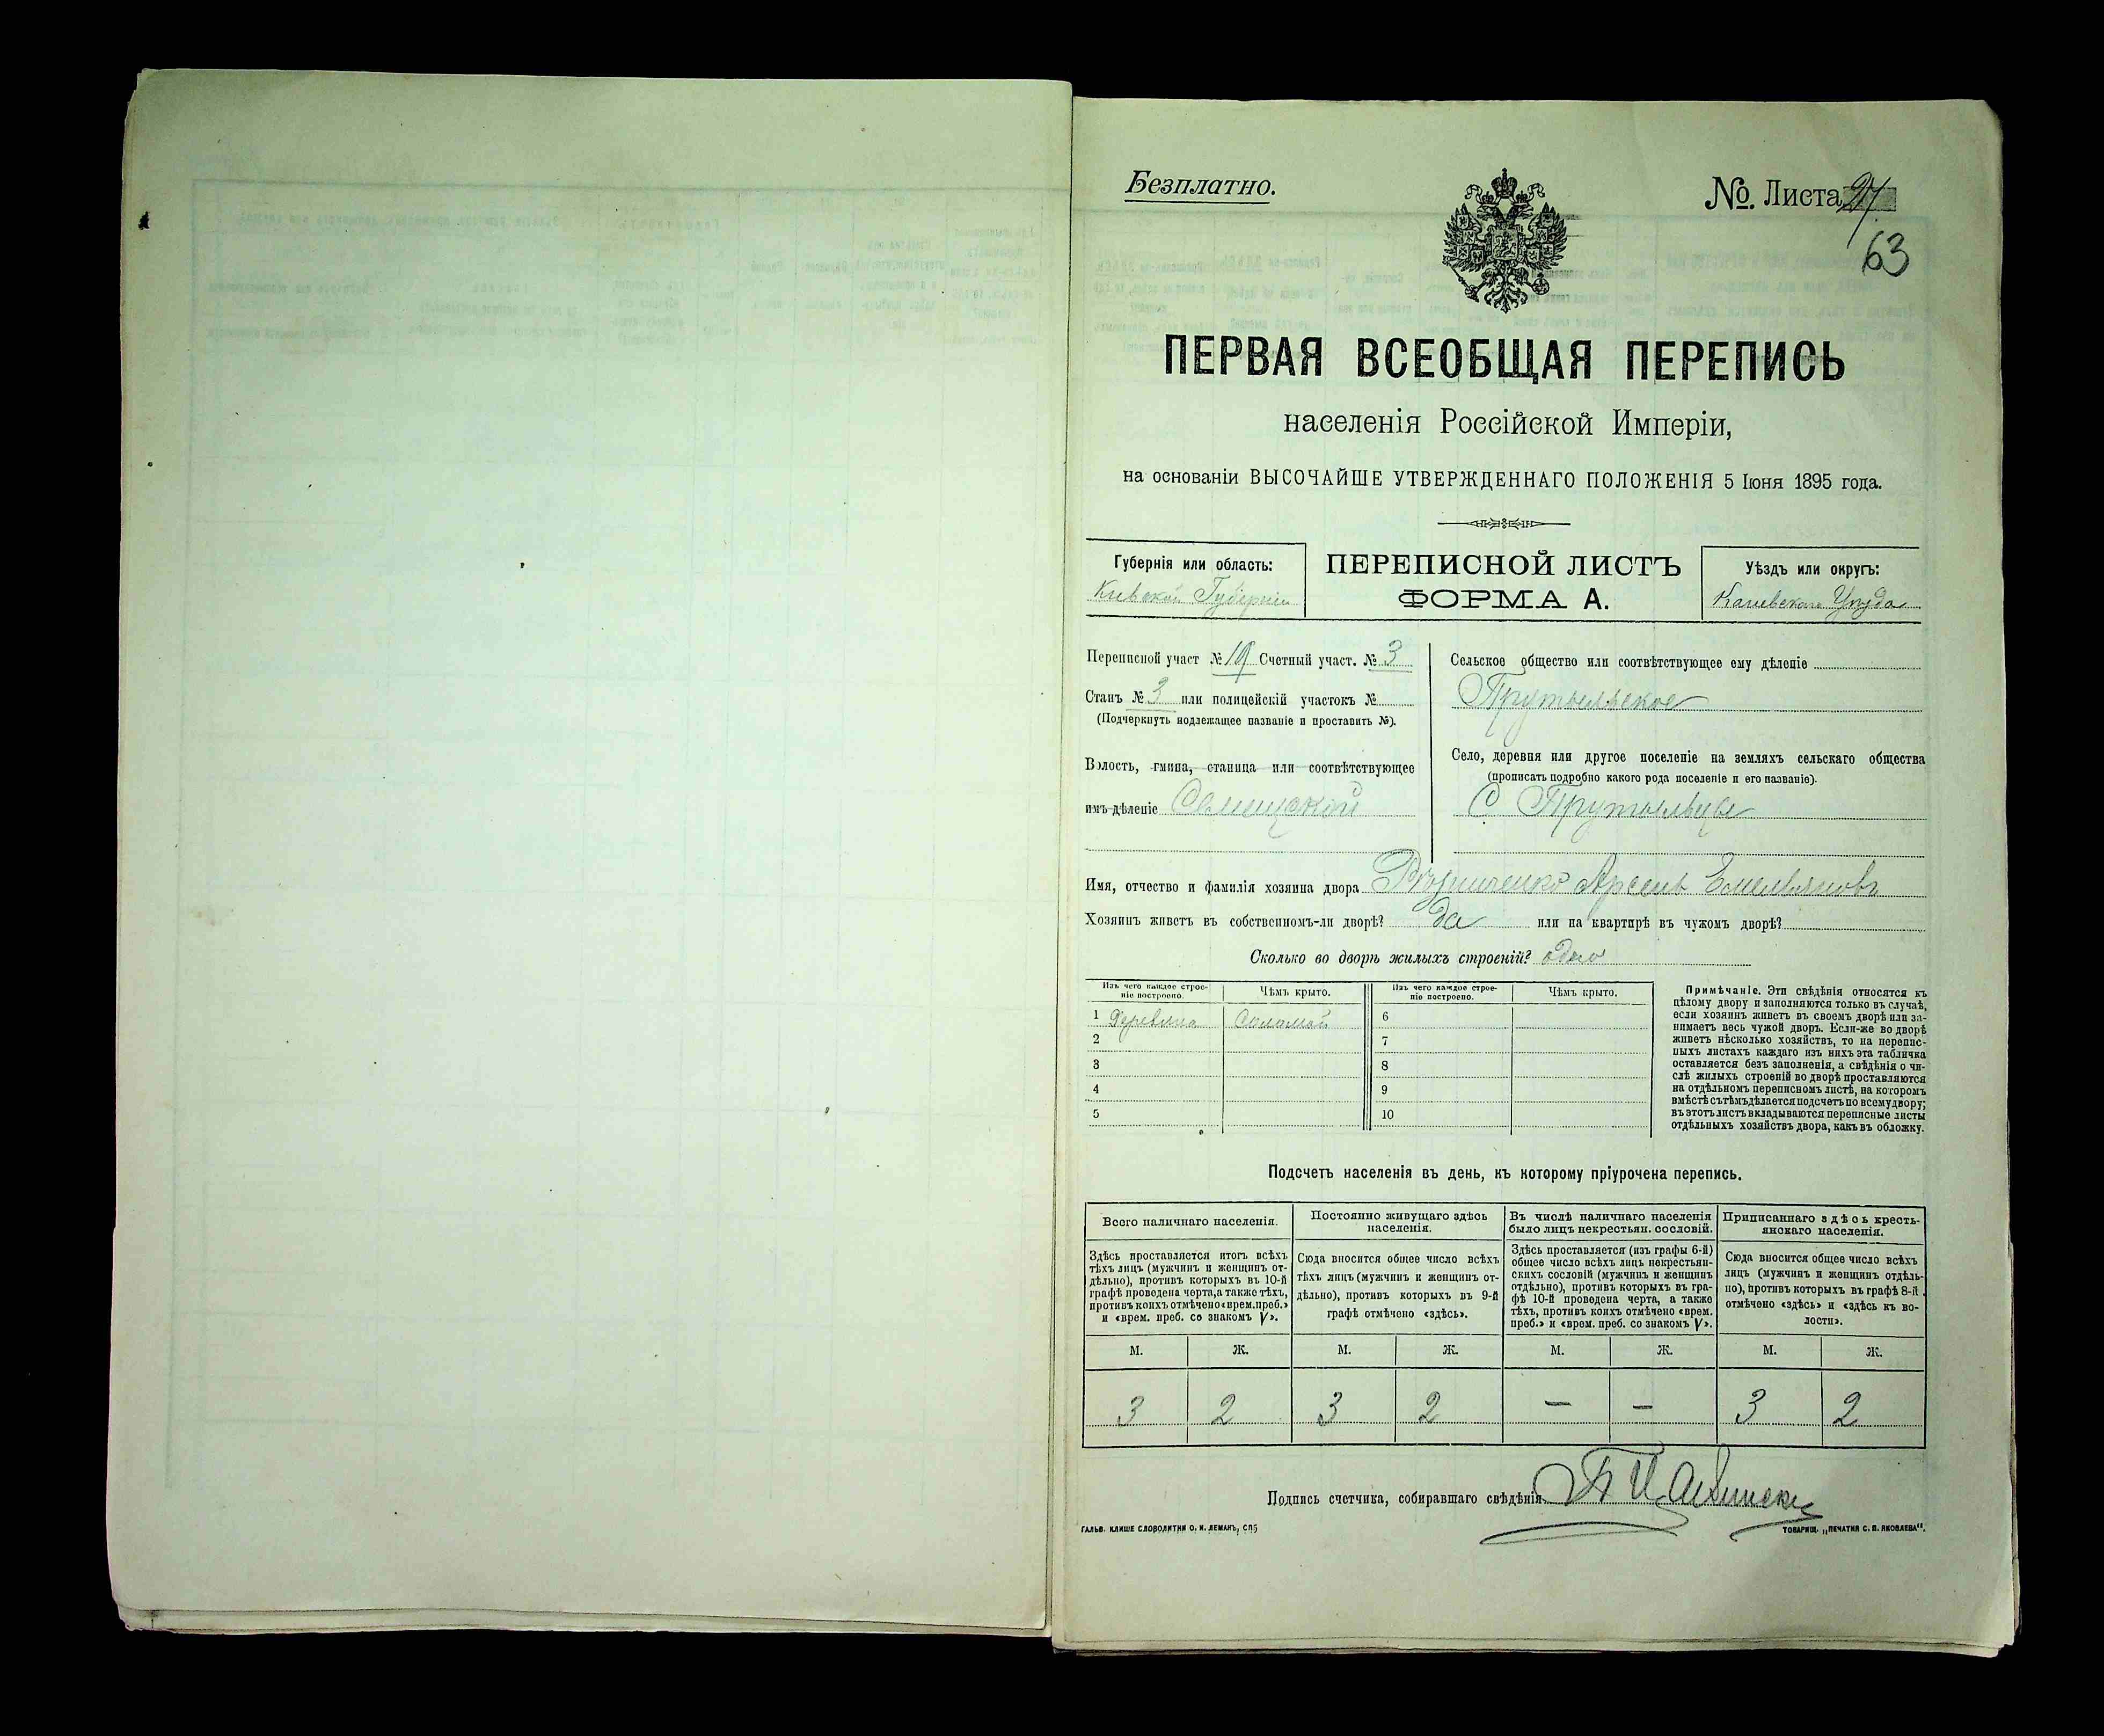 Безплатно.
№ Листа 27
63
ПЕРВАЯ ВСЕОБЩАЯ ПЕРЕПИСЬ
населенія Россійской Имперіи,
на основаніи ВЫСОЧАЙШЕ УТВЕРЖДЕННАГО ПОЛОЖЕНІЯ 5 Іюня 1895 года.
Губернія или область:
Кіевской Губерніи
ПЕРЕПИСНОЙ ЛИСТЪ
ФОРМА А.
Уѣздъ или округъ:
Каневскаго Уѣзда
Переписной участ № 19 Счетный участ. № 3
Станъ № 3 или полицейскій участокъ №
(Подчеркнуть подлежащее названіе и проставить №).
Волость, гмина, станица или соотвѣтствующее
имъ дѣленіе
Сельское общество или соотвѣтствующее ему дѣленіе
Прутыльское
Село, деревня или другое поселеніе на земляхъ сельскаго общества
(прописать подробно какого рода поселеніе и его названіе).
С Прутыльце
Имя, отчество и фамилія хозяина двора Арсенъ Емельяновъ
Хозяинъ живетъ въ собственномъ-ли дворѣ? да или на квартирѣ въ чужомъ дворѣ?
Сколько во дворѣ жилыхъ строеній? одно
Изъ чего каждое строе-
ніе построено.
Чѣмъ крыто.
1 Деревяна Соломой
2
3
4
5
Изъ чего каждое строе-
ніе построено.
Чѣмъ крыто.
6
7
8
9
10
Примѣчаніе. Эти свѣдѣнія относятся къ
цѣлому двору и заполняются только въ случаѣ,
если хозяинъ живетъ въ своемъ дворѣ или за-
нимаетъ весь чужой дворъ. Если-же во дворѣ
живетъ нѣсколько хозяйствъ, то на перепис-
ныхъ листахъ каждаго изъ нихъ эта табличка
оставляется безъ заполненія, а свѣдѣнія о чи-
слѣ жилыхъ строеній во дворѣ проставляются
на отдѣльномъ переписномъ листѣ, на которомъ
вмѣстѣ съ тѣмъ дѣлается подсчетъ по всему двору;
въ этотъ листъ вкладываются переписные листы
отдѣльныхъ хозяйствъ двора, какъ въ обложку.
Подсчетъ населенія въ день, къ которому пріурочена перепись.
Всего наличнаго населенія.
Здѣсь проставляется итогъ всѣхъ
тѣхъ лицъ (мужчинъ и женщинъ от-
дѣльно), противъ которыхъ въ 10-й
графѣ проведена черта, а также тѣхъ,
противъ коихъ отмѣчено «врем. преб.»
и «врем. преб. со знакомъ V».
Постоянно живущаго здѣсь
населенія.
Сюда вносится общее число всѣхъ
тѣхъ лицъ (мужчинъ и женщинъ от-
дѣльно), противъ которыхъ въ 9-й
графѣ отмѣчено «здѣсь».
Въ числѣ наличнаго населенія
было лицъ некрестьян. сословій.
Здѣсь проставляется (изъ графы 6-й)
общее число всѣхъ лицъ некрестьян-
скихъ сословій (мужчинъ и женщинъ
отдѣльно), противъ которыхъ въ гра-
фѣ 10-й проведена черта, а также
тѣхъ, противъ коихъ отмѣчено «врем.
преб.» и «врем. преб. со знакомъ V».
Приписаннаго здѣсь кресть-
янскаго населенія.
Сюда вносится общее число всѣхъ
лицъ (мужчинъ и женщинъ отдѣль-
но), противъ которыхъ въ графѣ 8-й
отмѣчено «здѣсь» и «здѣсь къ во-
лости».
М. Ж. М. Ж. М. Ж. М. Ж.
3 2 3 2 — — 3 2
Подпись счетчика, собиравшаго свѣдѣнія
ГАЛЬВ. КЛИШЕ СЛОВОЛИТНИ О. И. ЛЕМАНЪ, СПБ
ТОВАРИЩ. „ПЕЧАТНЯ С. П. ЯКОВЛЕВА".